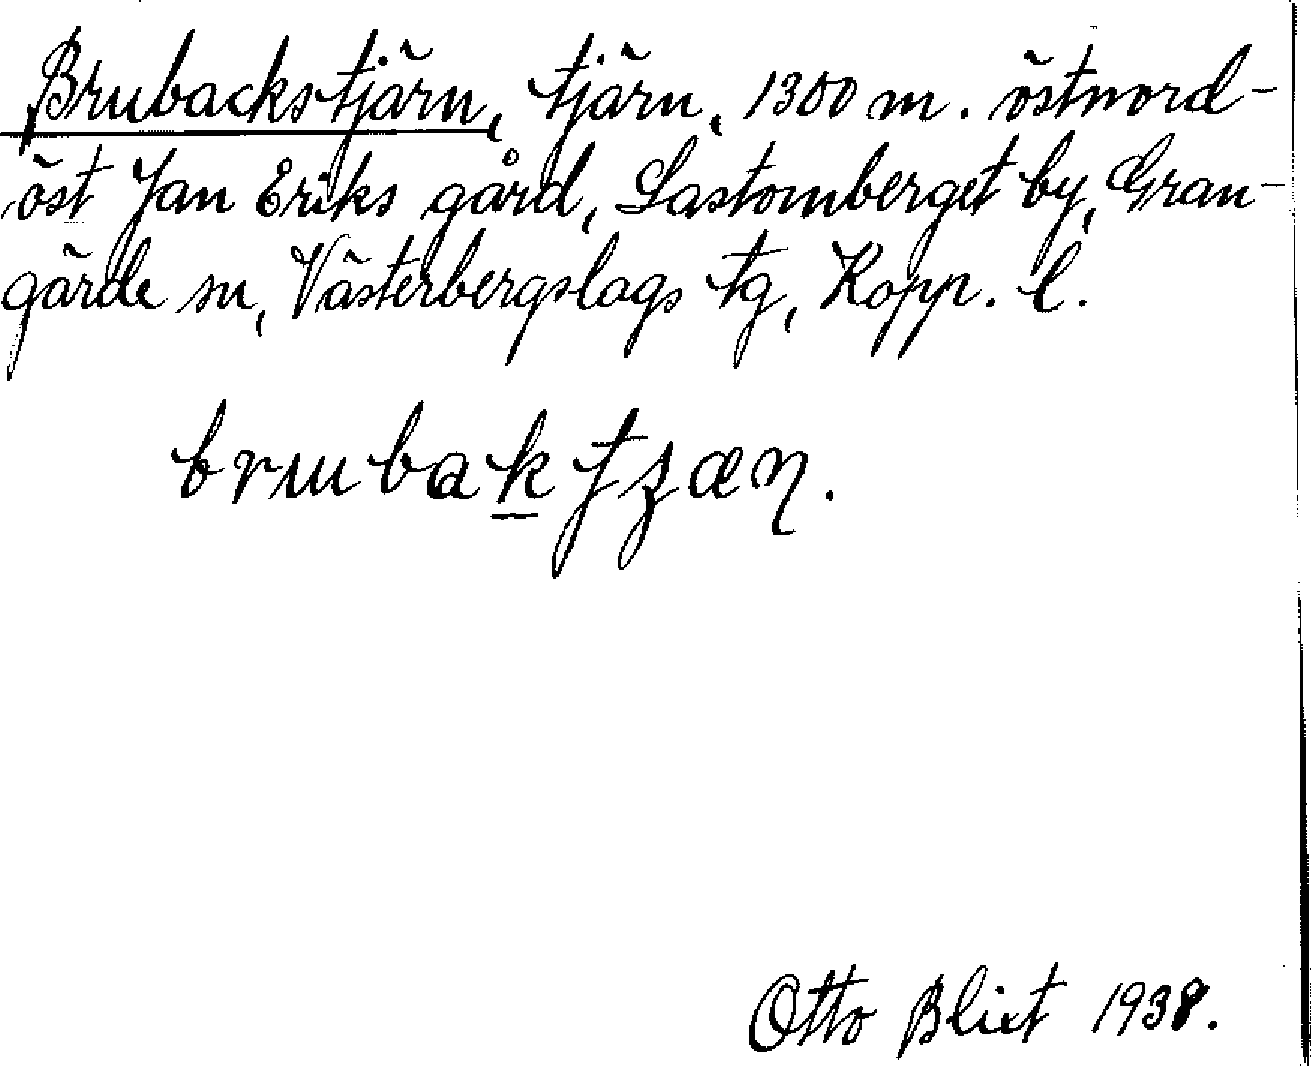 Brubackstjärn, tjärn, 1300 m. östnord-
öst Jan Eriks gård, Lastomberget by, Gran-
gärde sn, Västerbergslags tg, Kopp. l.
brubaktʒæƞ.
Otto Blixt 1938.